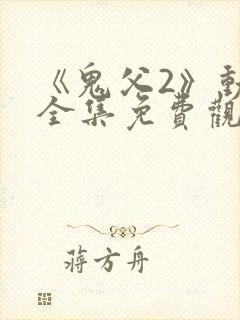 《鬼父2》動
全集免費觀
蔣方舟